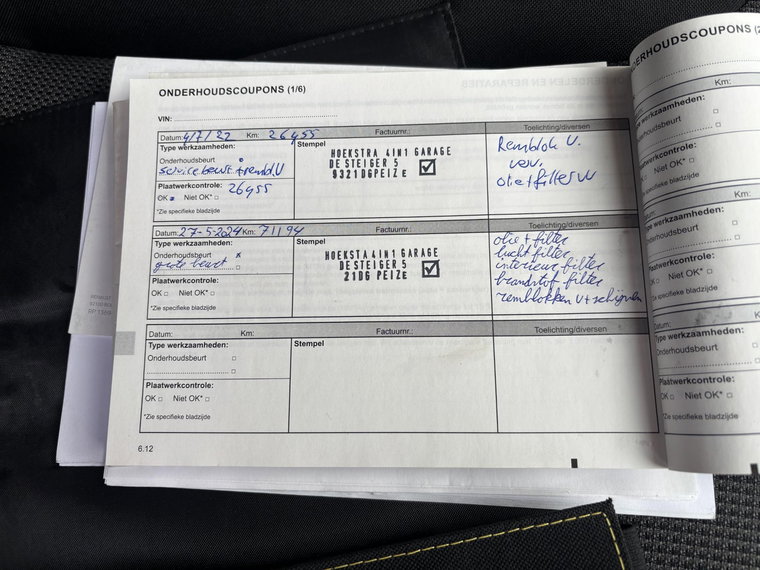 ONDERHOUDSCOUPONS (1/6)
VIN:
Datum: 4/7/22 Km: 26955 Factuurnr.: Toelichting/diversen
Type werkzaamheden:
Onderhoudsbeurt
servicebeurt
Plaatwerkcontrole: 26955
OK Niet OK*
*Zie specifieke bladzijde
Stempel
HOEKSTRA 4IN1 GARAGE
DE STEIGER 5
9321DG PEIZE
Remblok V.
verv.
olie+filter
Datum: 27-5-2024 Km: 71194 Factuurnr.: Toelichting/diversen
Type werkzaamheden:
Onderhoudsbeurt x
grote beurt
Plaatwerkcontrole:
OK Niet OK*
*Zie specifieke bladzijde
Stempel
HOEKSTA 4IN1 GARAGE
DE STEIGER 5
21DG PEIZE
olie + filter
lucht filter
interieur filter
brandstof filter
remblokken V+schijven
Datum: Km: Factuurnr.: Toelichting/diversen
Type werkzaamheden:
Onderhoudsbeurt
Plaatwerkcontrole:
OK Niet OK*
*Zie specifieke bladzijde
Stempel
6.12
ERHOUDSCOUPONS (2
Km:
Type werkzaamheden:
Onderhoudsbeurt
Plaatwerkcontrole:
Niet OK*
Km:
Onderhoudsbeurt
Plaatwerkcontrole:
Niet OK*
*Zie specifieke bladzijde
Type werkzaamheden:
Onderhoudsbeurt
Plaatwerkcontrole:
OK Niet OK*
*Zie specifieke bladzijde